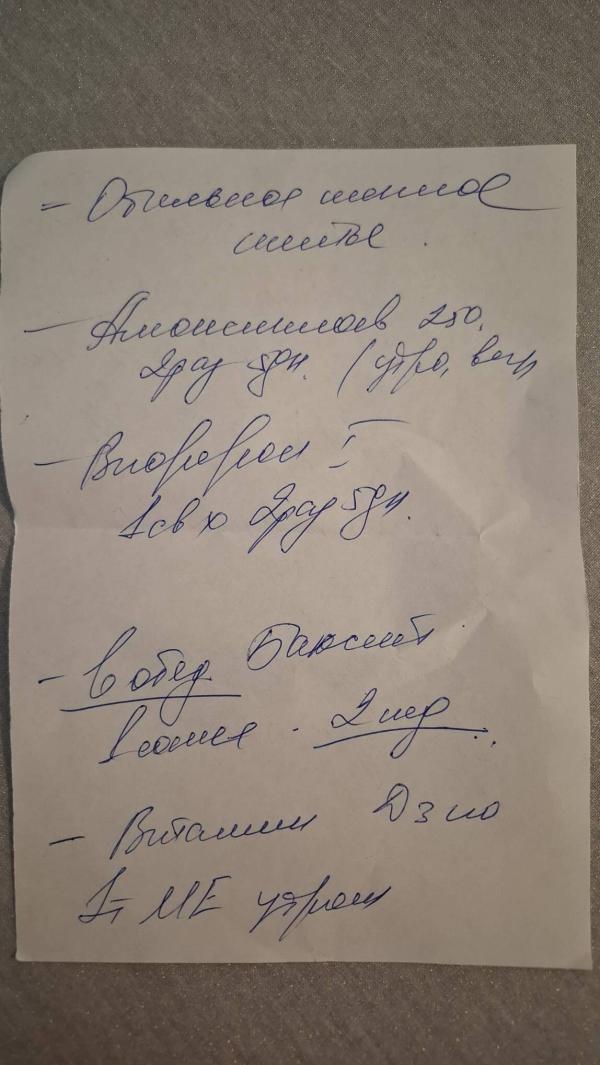 = Обильное теплое
питье.
- Амоксиклав 250.
2 раз 5 дн. (утро, веч
- Виферон I
1 св х 2 раз 5 дн.
- в обед
1 капсл. 2 нед.
- Витамин Д3 по
1т МЕ утром